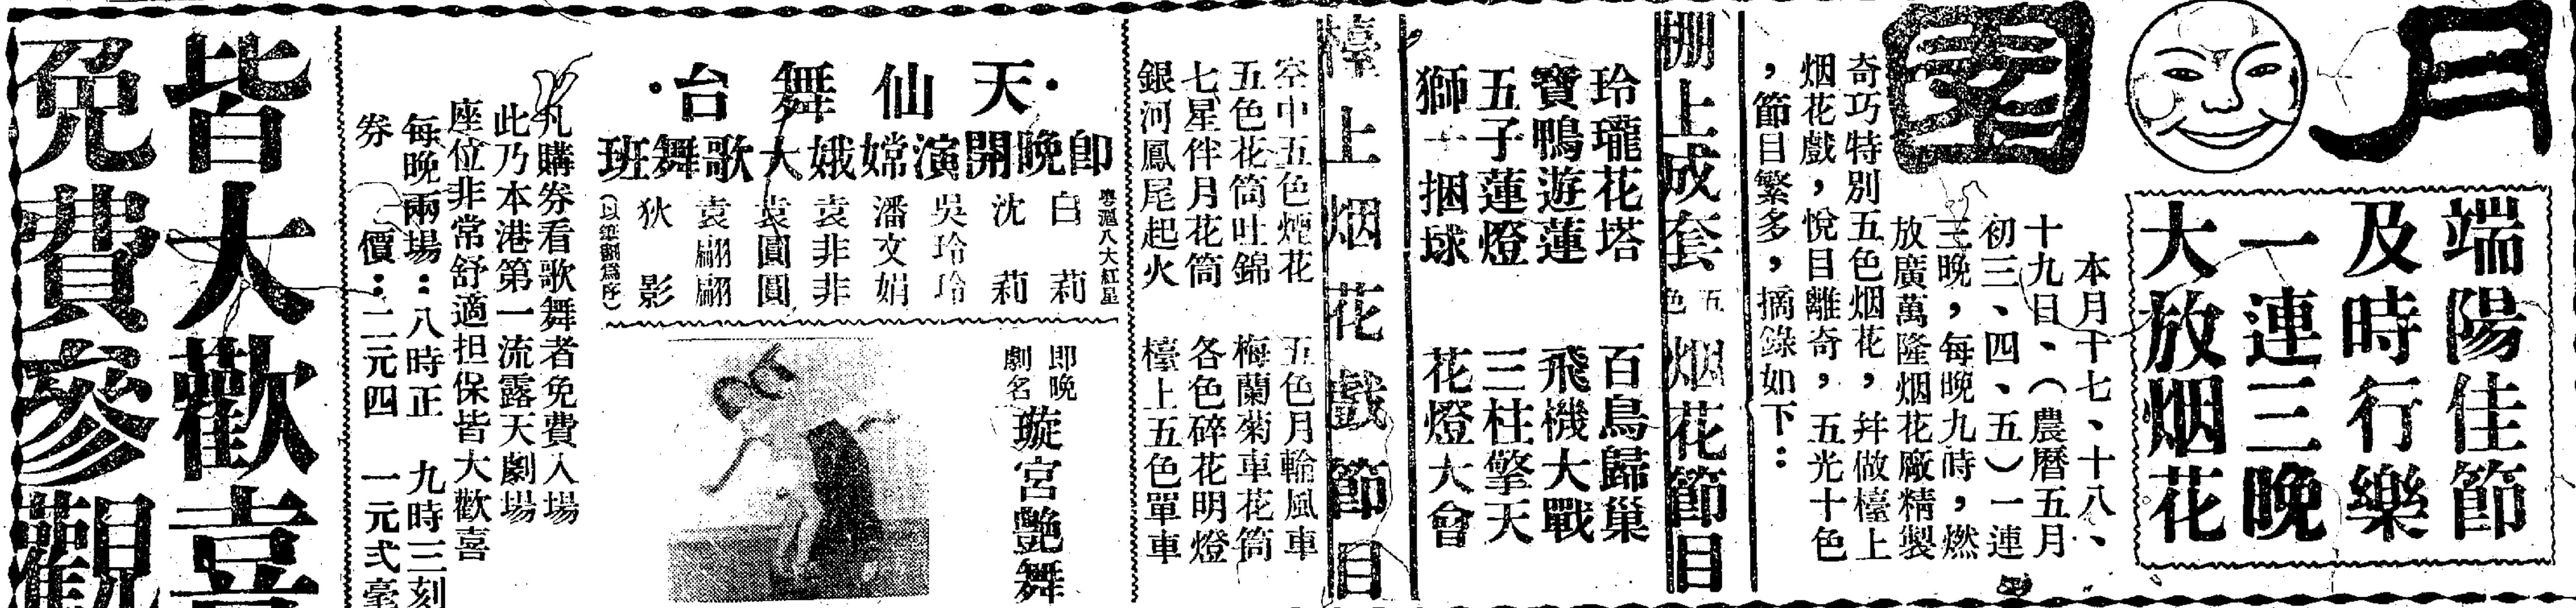 月園
端陽佳節
及時行樂
一連三晚
大放烟花
本月十七、十八、
十九日、（農曆五月
初三、四、五）一連
三晚，每晚九時，燃
放廣萬隆烟花廠精製
奇巧特別五色烟花，并做檯上
烟花戲，悅目離奇，五光十色
，節目繁多，摘錄如下：
棚上成套五色烟花節目
玲瓏花塔　百鳥歸巢
寶鴨遊蓮　飛機大戰
五子蓮燈　三柱擎天
獅子捆球　花燈大會
檯上烟花戲節目
空中五色烟花　五色月輪風車
五色花筒吐錦　梅蘭菊車花筒
七星伴月花筒　各色碎花明燈
銀河鳳尾起火　檯上五色單車
·天仙舞台·
即晚開演嫦娥大歌舞班
粵滬八大紅星
白莉
沈莉
吳玲玲
潘文娟
袁非非
袁圓圓
袁翩翩
狄影
（以筆劃為序）
即晚劇名
璇宮艷舞
凡購券看歌舞者免費入場
此乃本港第一流露天劇場
座位非常舒適担保皆大歡喜
每晚兩場：八時正　九時三刻
券價：二元四　一元弍毫
皆大歡喜
免費參觀